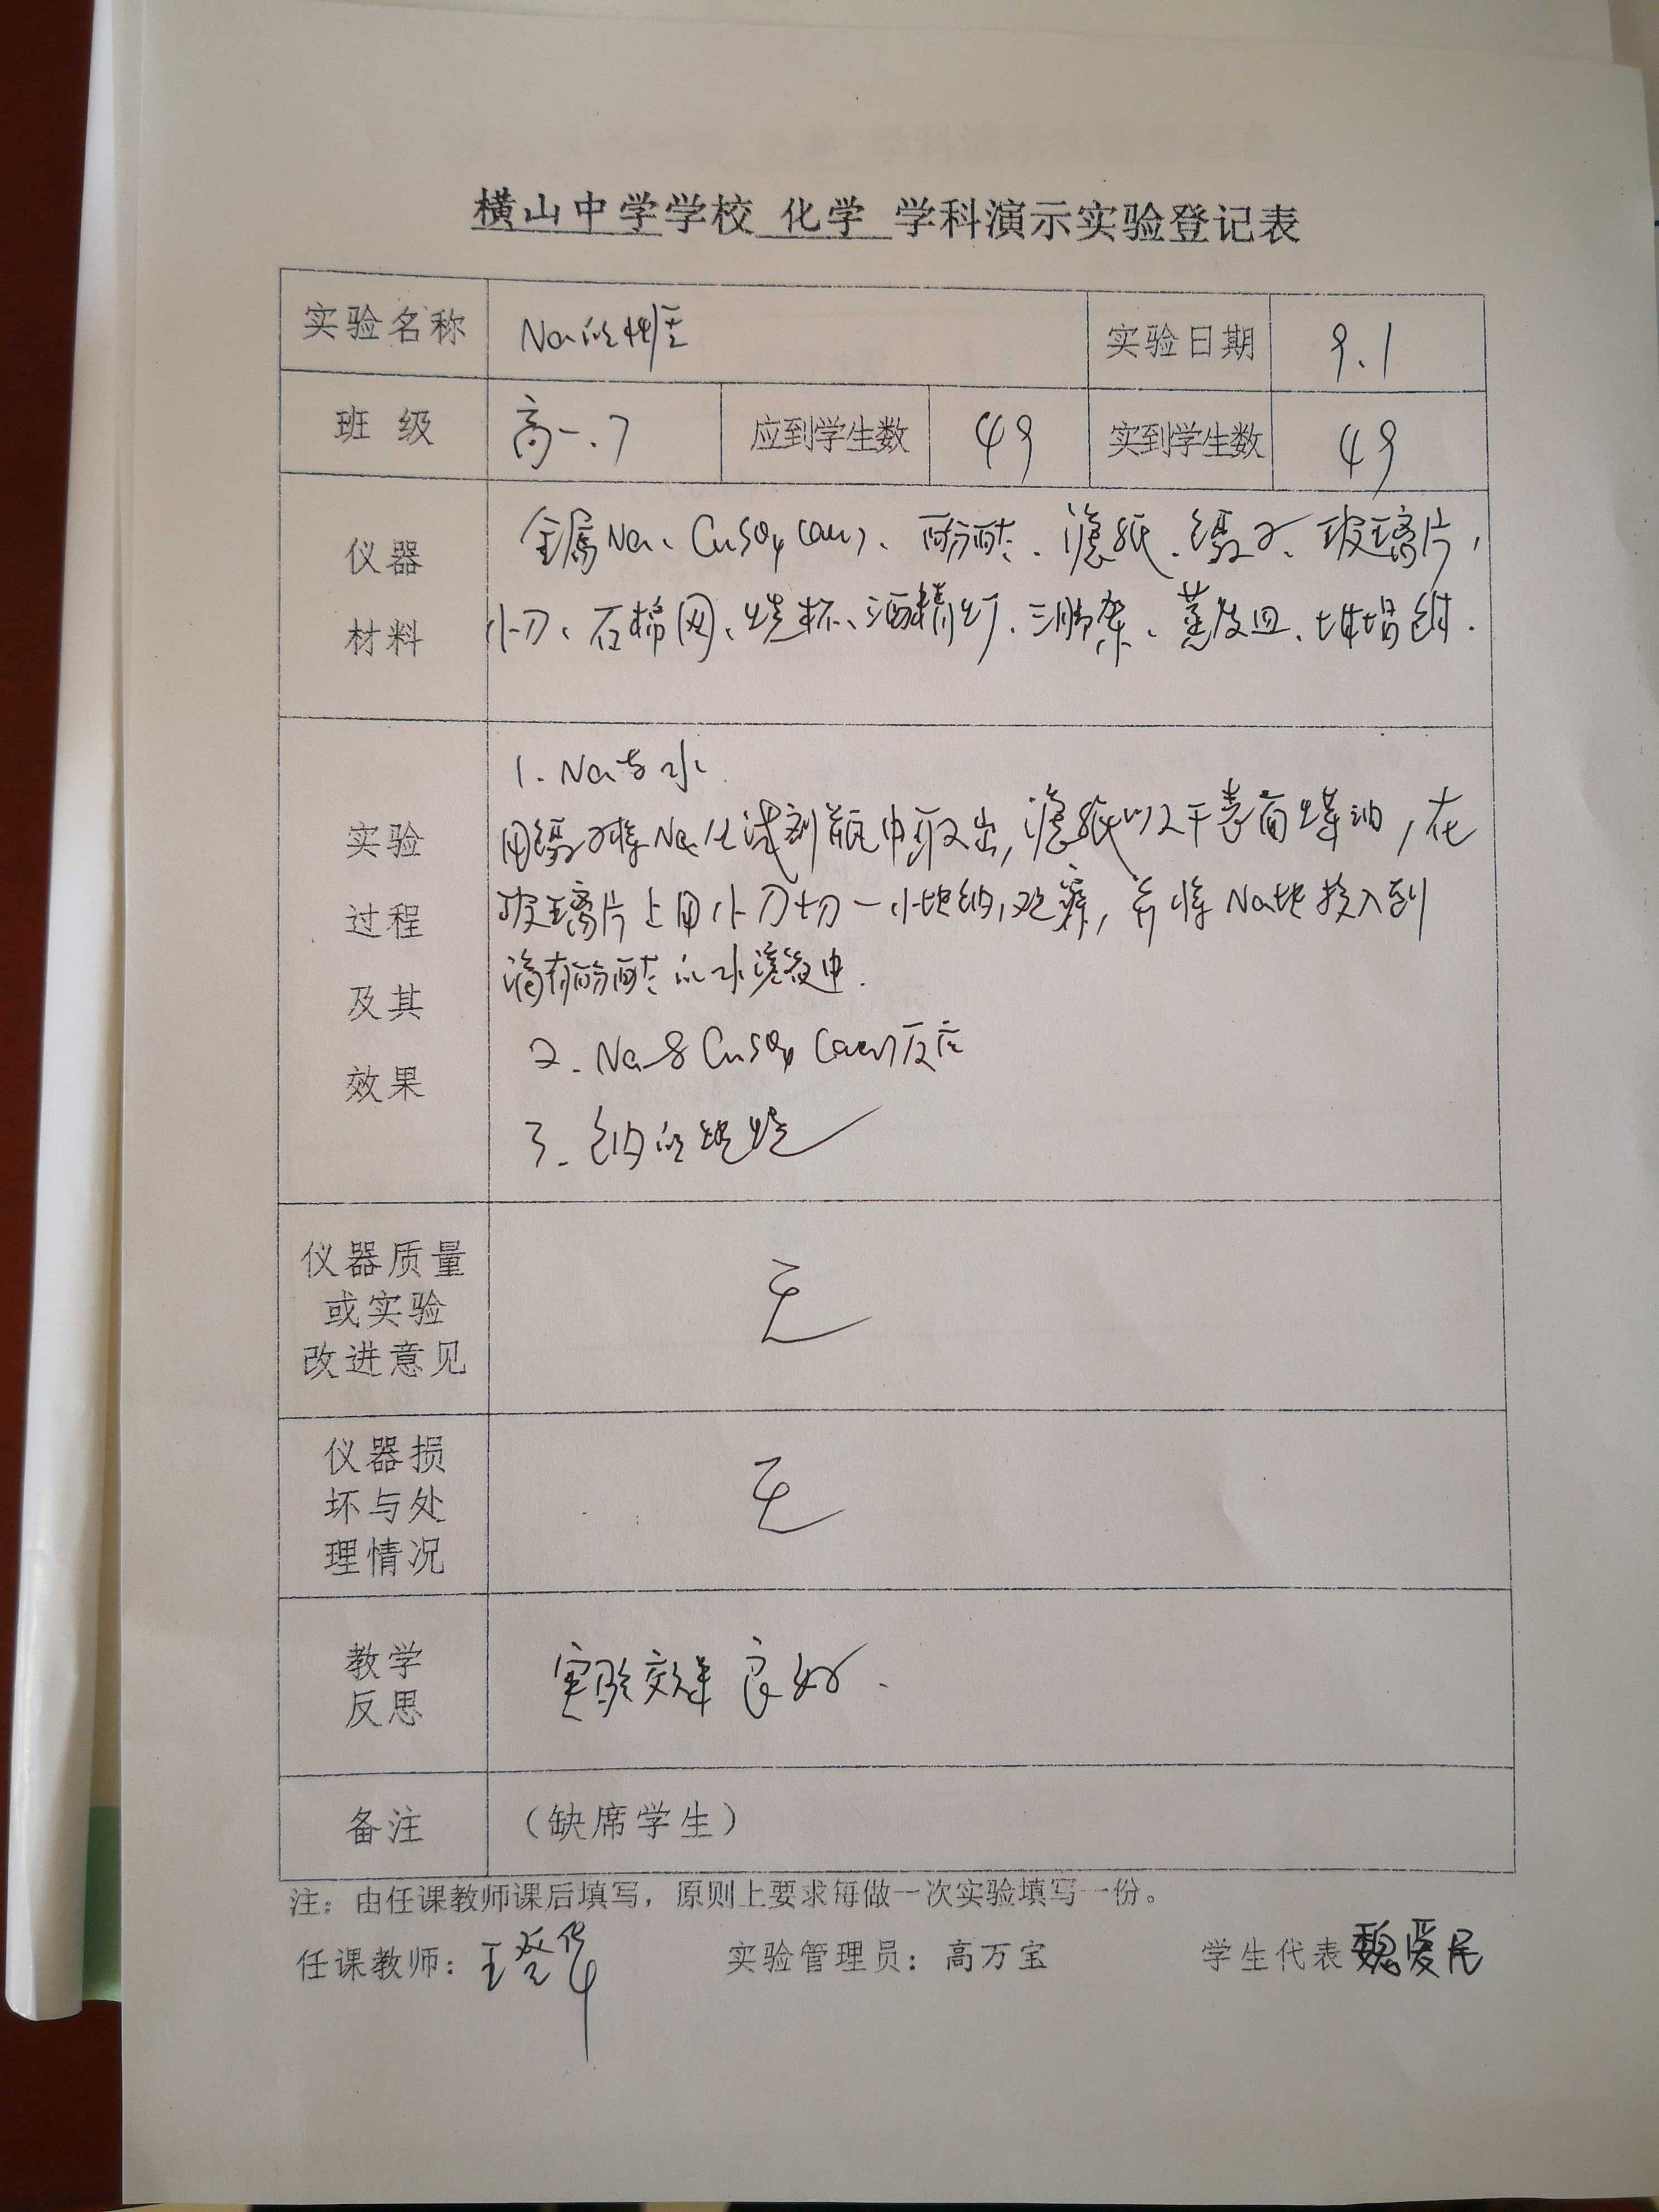 横山中学学校 化学 学科演示实验登记表
实验名称 Na的性质 实验日期 9.1
班 级 高一.7 应到学生数 49 实到学生数 49
仪器
材料
金属Na、CuSO4(aq)、酚酞、滤纸、镊子、玻璃片,
小刀、石棉网、烧杯、酒精灯、三脚架、蒸发皿、坩埚钳.
实验
过程
及其
效果
1. Na与水
用镊子将Na从试剂瓶中取出,滤纸吸干表面煤油,在
玻璃片上用小刀切一小块钠,观察,并将Na块投入到
滴有酚酞的水溶液中.
2. Na与CuSO4(aq)反应
3. 钠的燃烧
仪器质量
或实验
改进意见
无
仪器损
坏与处
理情况
无
教学
反思
实验效果良好.
备注 (缺席学生)
注:由任课教师课后填写,原则上要求每做一次实验填写一份。
任课教师:王 实验管理员:高万宝 学生代表 魏爱民